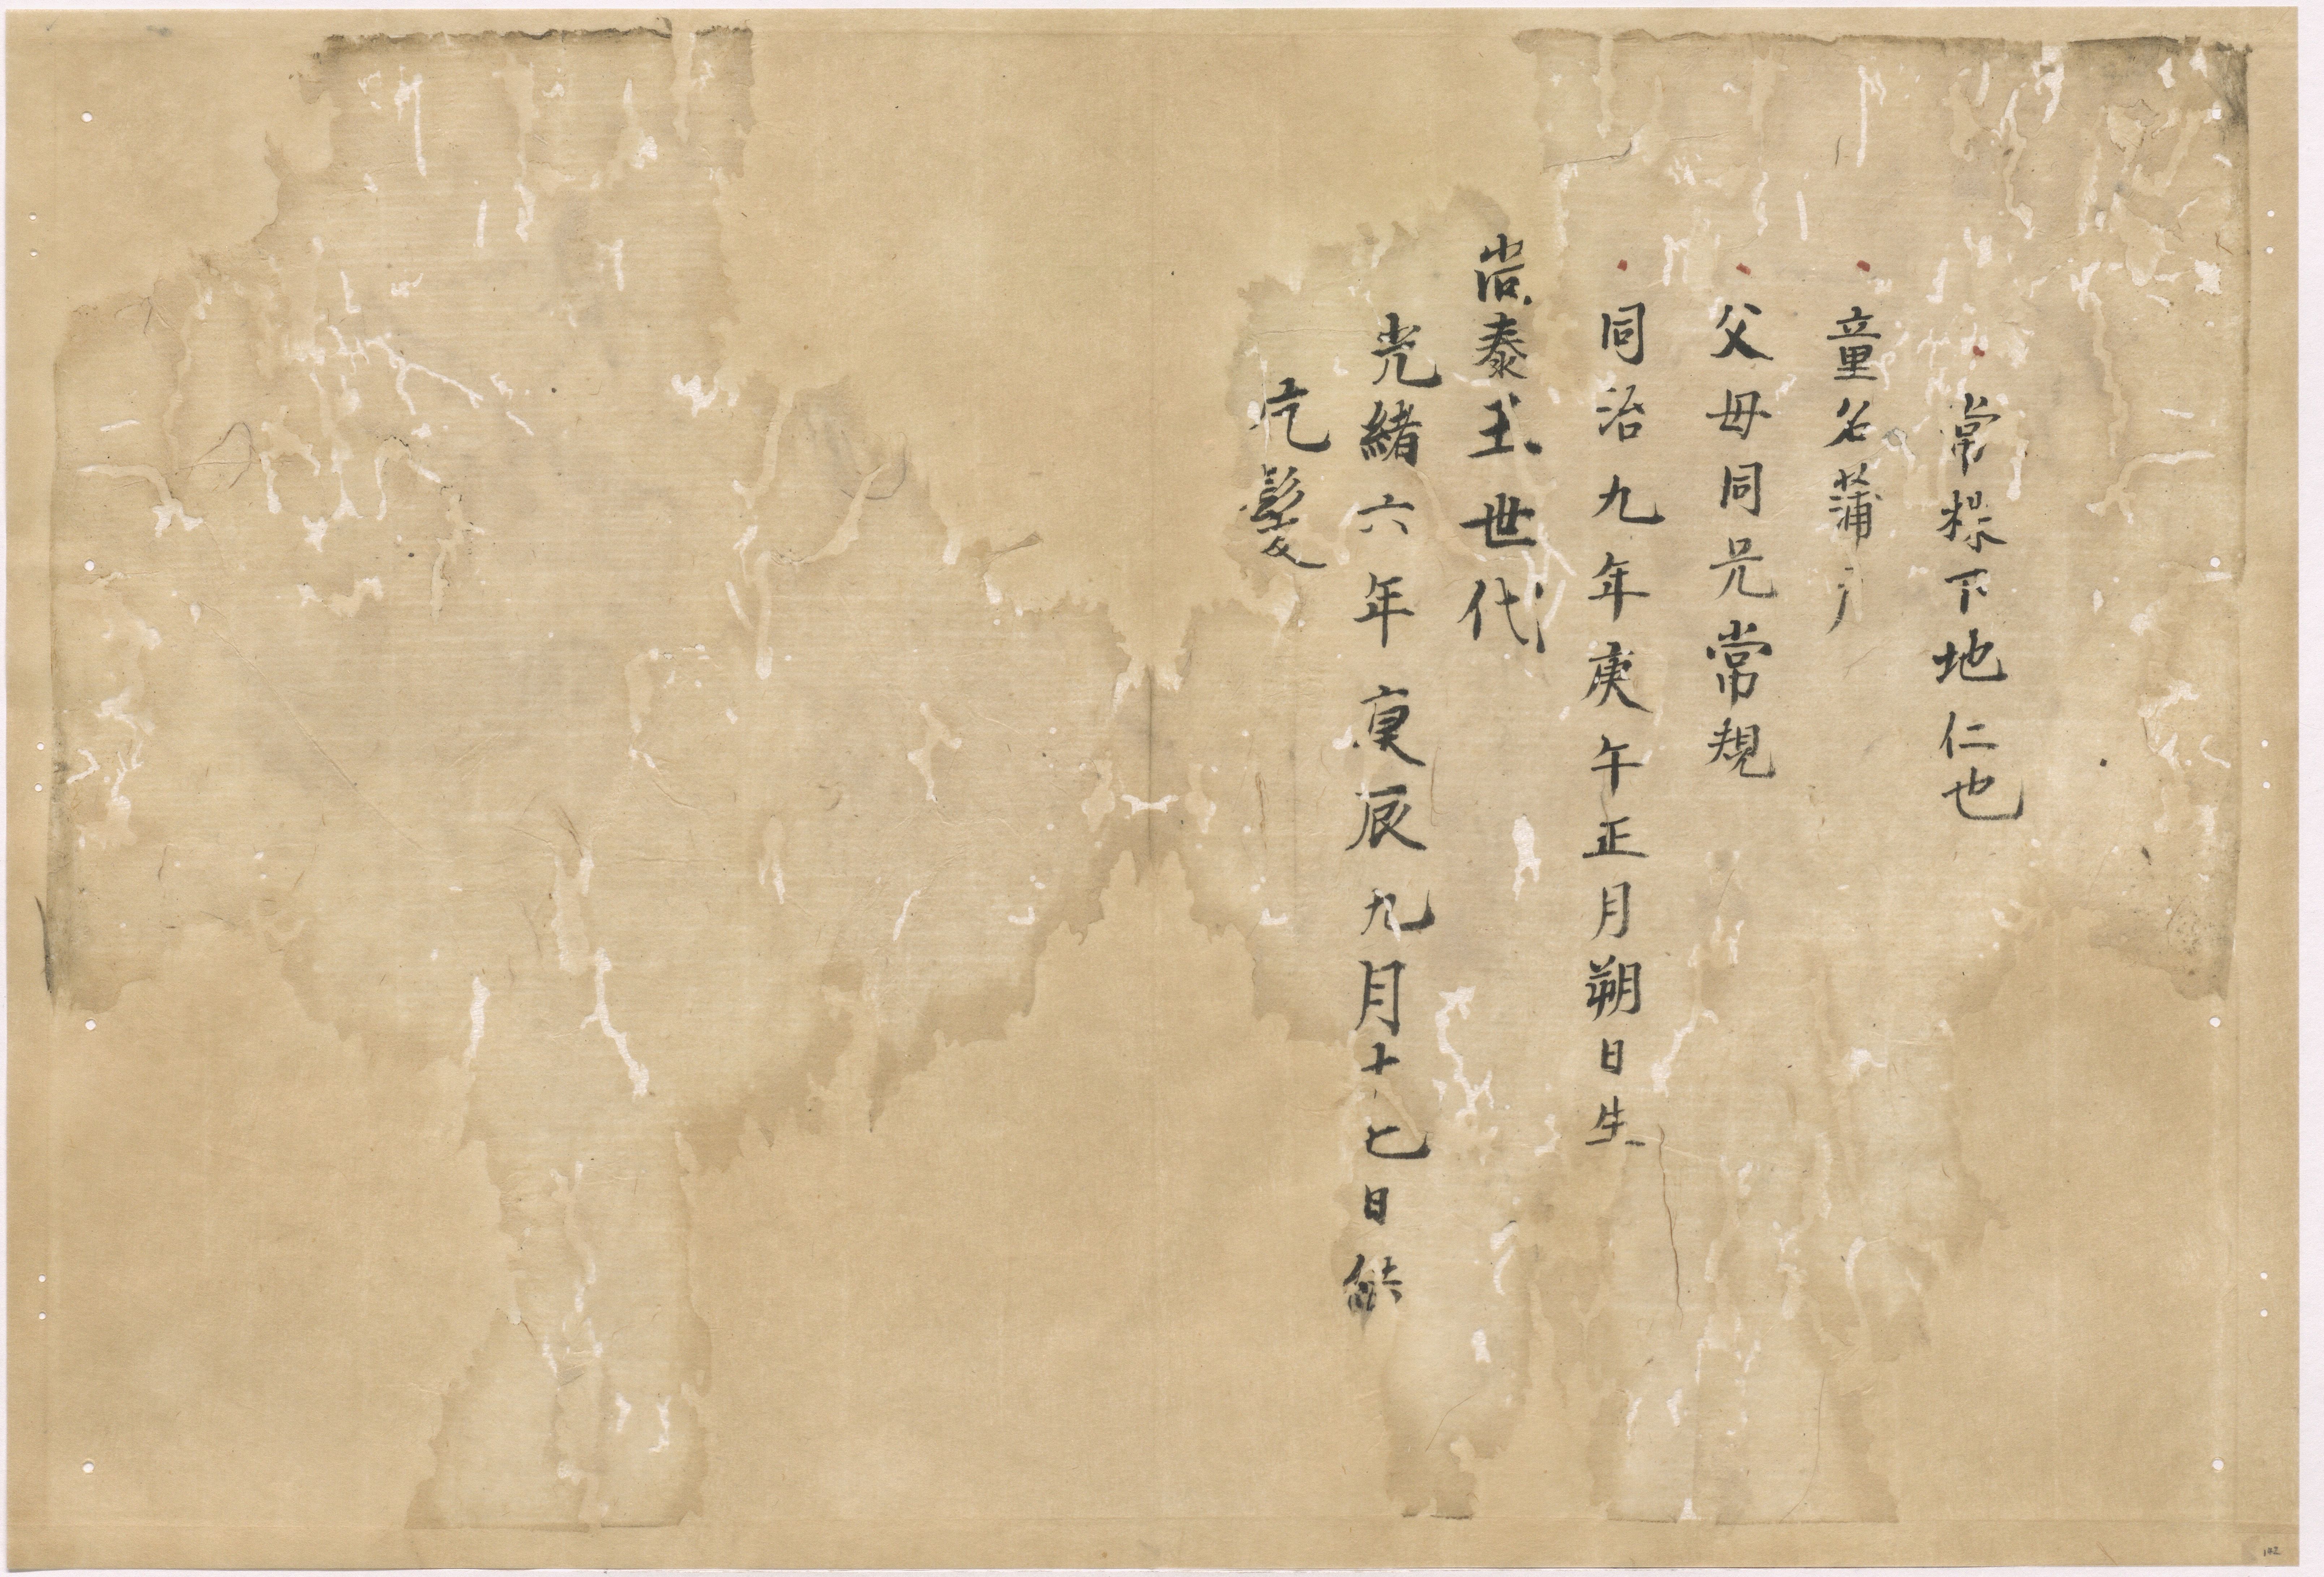 常䌽下地仁也
童名蒲戸
父母同兄常規
同治九年庚午正月朔日生
尚泰王世代
光緒六年庚辰九月十七日結
片髪
142